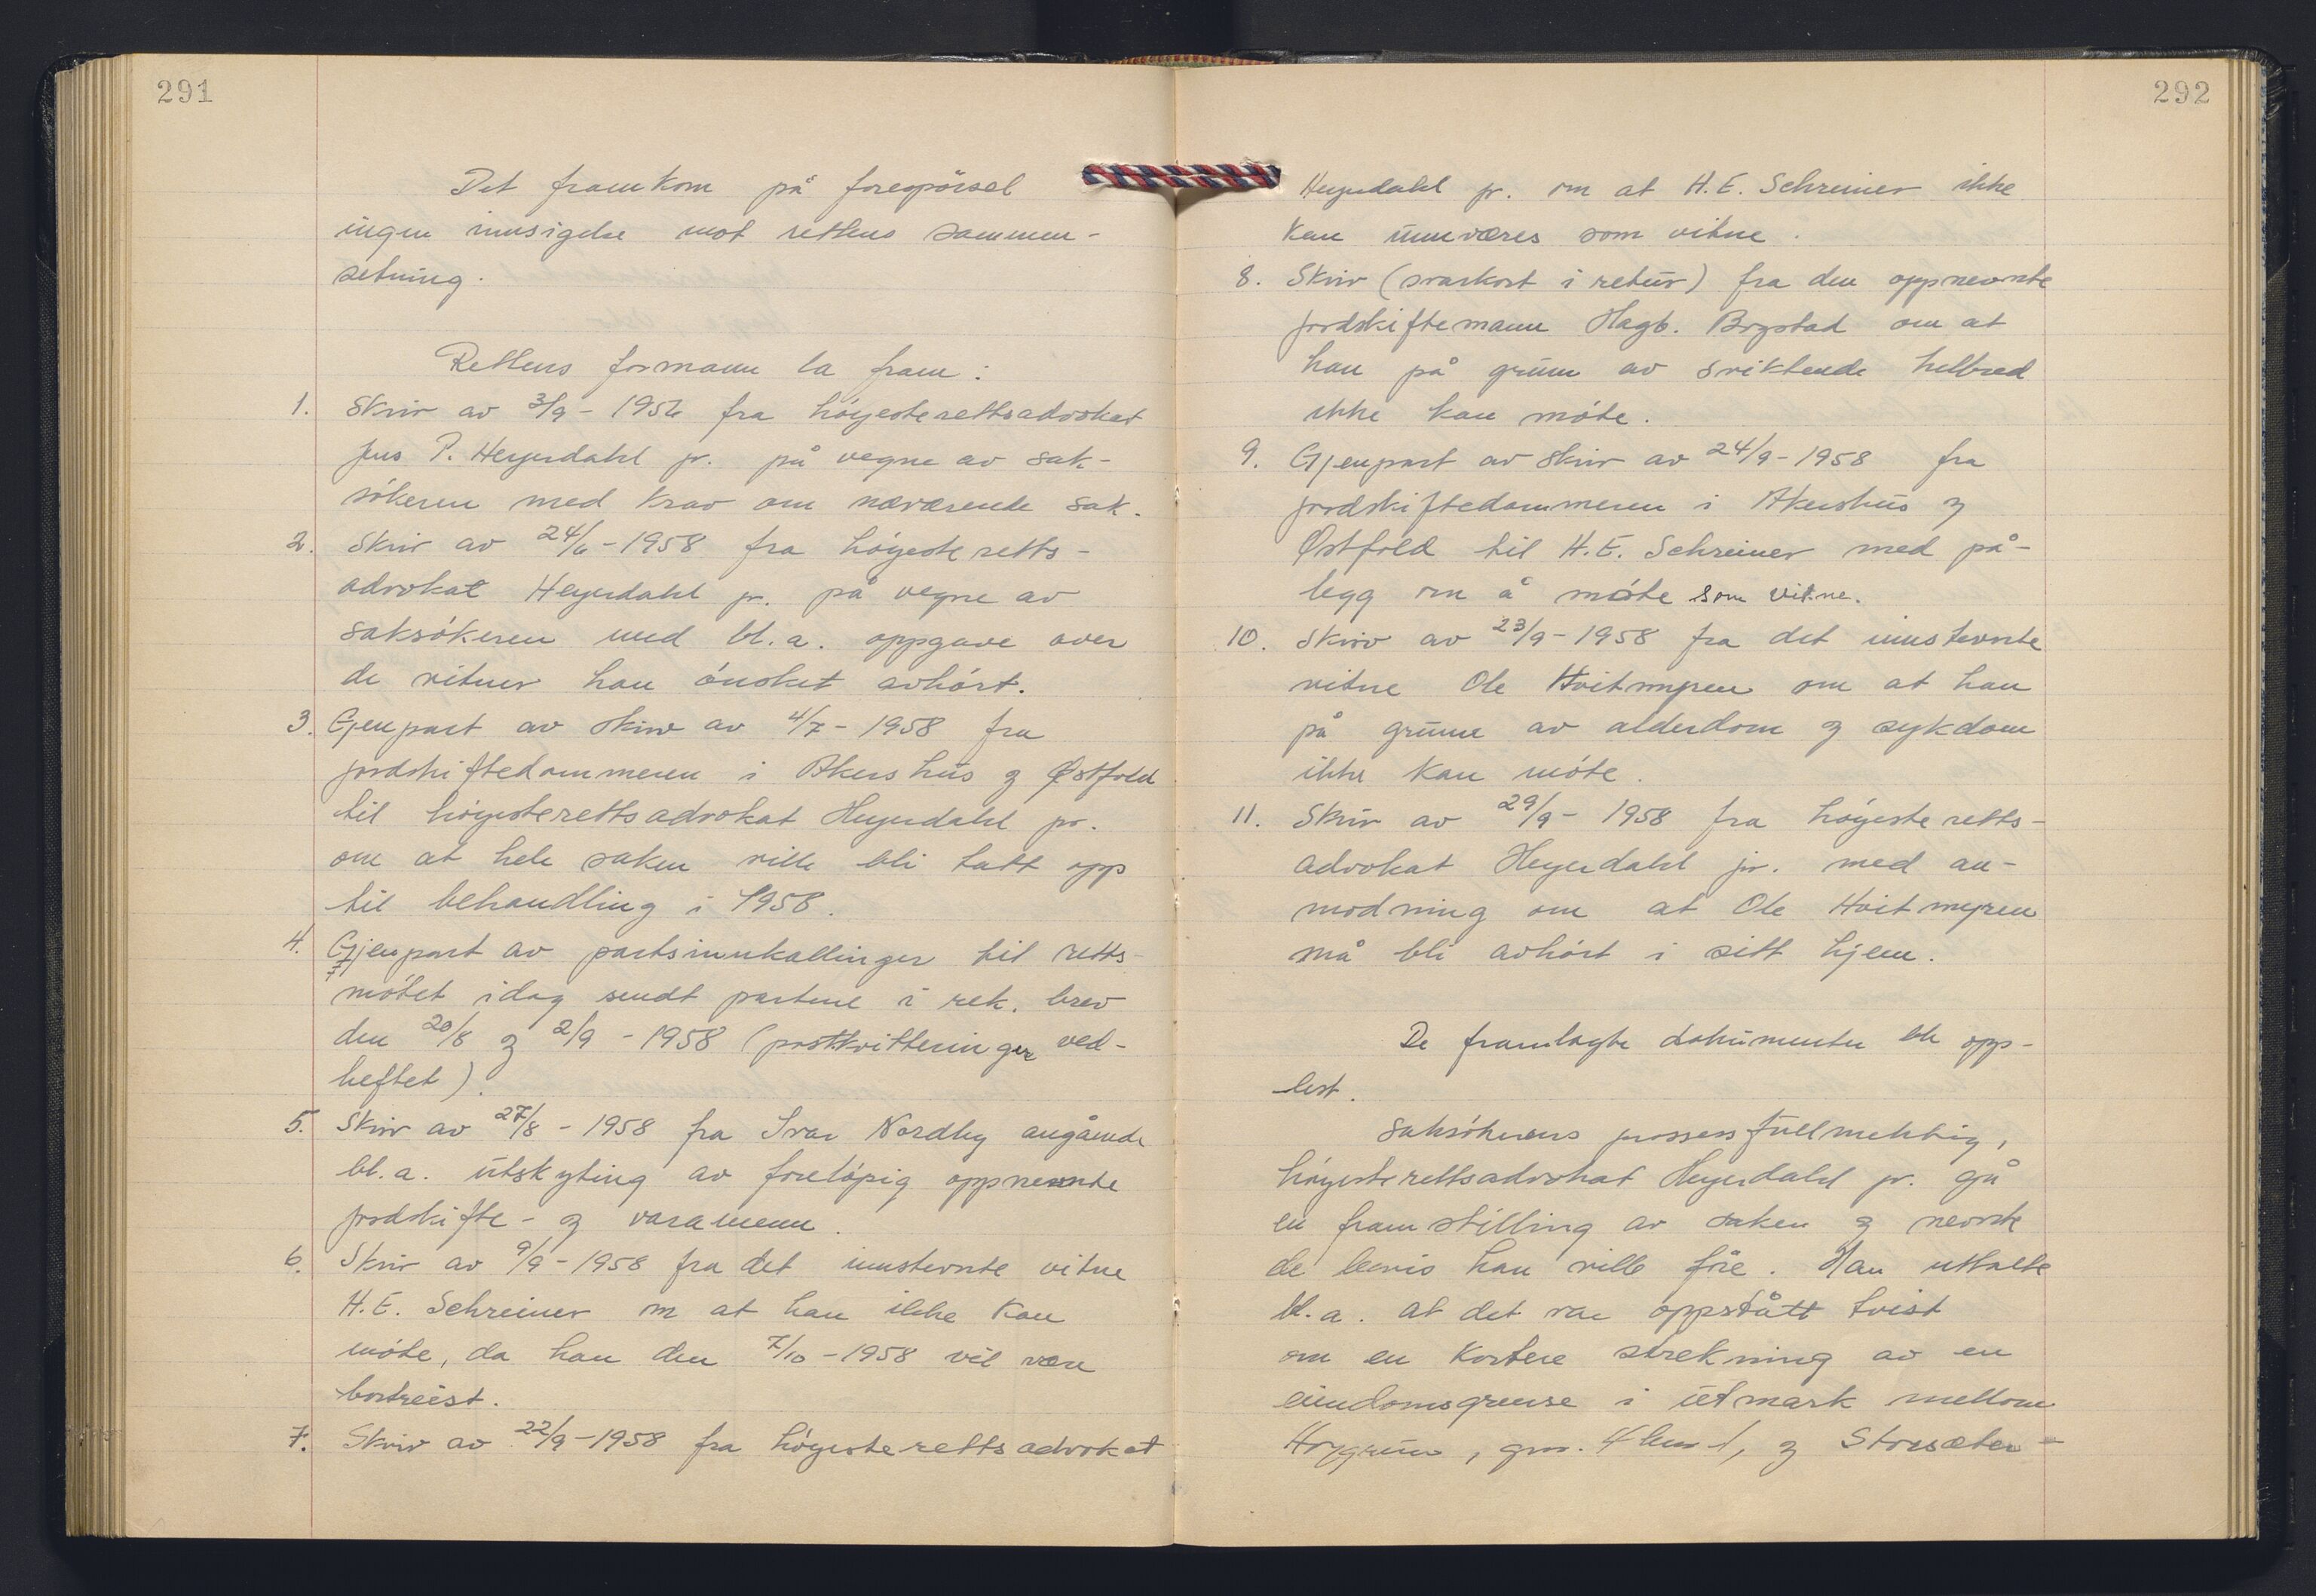 291
Det framkom på forespörsel
ingen innsigelse mot rettens sammen-
setning.
Rettens formann la fram:
1. Skriv av 3/9 - 1956 fra höyesterettsadvokat
Jens P. Heyerdahl jr. på vegne av sak-
sökeren med krav om nærværende sak.
2. Skriv av 24/6 - 1958 fra höyesteretts-
advokat Heyerdahl jr. på vegne av
saksökeren med bl.a. oppgave over
de vitner han önsket avhört.
3. Gjenpart av skriv av 4/7 - 1958 fra
jordskiftedommeren i Akershus og Østfold
til höyesterettsadvokat Heyerdahl jr.
om at hele saken ville bli tatt opp
til behandling i 1958.
4. Gjenpart av partsinnkallinger til retts-
mötet idag sendt partene i rek. brev
den 20/8 og 2/9 - 1958 (postkvitteringer ved-
heftet).
5. Skriv av 27/8 - 1958 fra Ivar Nordby angående
bl.a. utskyting av forelöpig oppnevnte
jordskifte- og varamenn.
6. Skriv av 9/9 - 1958 fra det innstevnte vitne
H.E. Schreiner om at han ikke kan
möte, da han den 7/10 - 1958 vil være
bortreist.
7. Skriv av 22/9 - 1958 fra höyesterettsadvokat
292
Heyerdahl jr. om at H.E. Schreiner ikke
kan unnværes som vitne.
8. Skriv (svarkort i retur) fra den oppnevnte
jordskiftemann Hagb. Brystad om at
han på grunn av sviktende helbred
ikke kan möte.
9. Gjenpart av skriv av 24/9 - 1958 fra
jordskiftedommeren i Akershus og
Østfold til H.E. Schreiner med på-
legg om å möte som vitne.
10. Skriv av 23/9 - 1958 fra det innstevnte
vitne Ole Hvitmyren om at han
på grunn av alderdom og sykdom
ikke kan möte.
11. Skriv av 29/9 - 1958 fra höyesteretts-
advokat Heyerdahl jr. med an-
modning om at Ole Hvitmyren
må bli avhört i sitt hjem.
De framlagte dokumenter ble opp-
lest.
Saksökerens prosessfullmektig,
höyesterettsadvokat Heyerdahl jr. ga
en framstilling av saken og nevnte
de bevis han ville före. Han uttalte
bl.a. at det var oppstått tvist
om en kortere strekning av en
eiendomsgrense i utmark mellom
gnr. 4 bnr 1, og Storsæter-